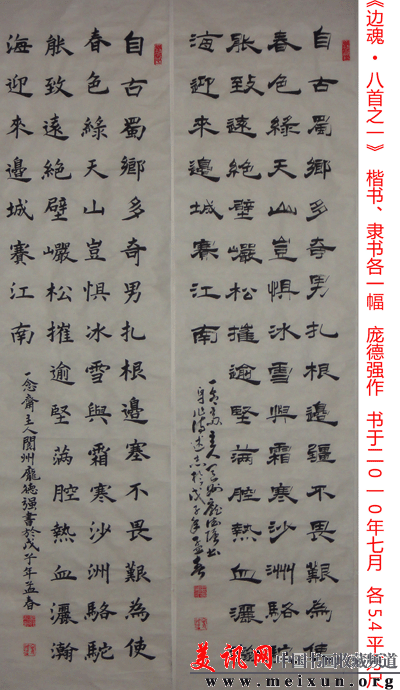 《边魂·八首之一》 楷书、隶书各一幅 庞德强作 书于二0一0年七月 各5.4平
自古蜀鄉多奇男扎根邊疆不畏艱為使
春色綠天山豈惧冰雪與霜寒沙洲駱駝
能致遠絕壁巗松摧逾堅滿腔熱血灑瀚
海迎來邊城賽江南
自古蜀鄉多奇男扎根邊塞不畏艱為使
春色綠天山豈惧冰雪與霜寒沙洲駱駝
能致遠絕壁巗松摧逾堅滿腔熱血灑瀚
海迎來邊城賽江南
一念齋主人閬州龐德强書於戊子年孟春
美讯网 中国书画收藏频道
www.meixun.org